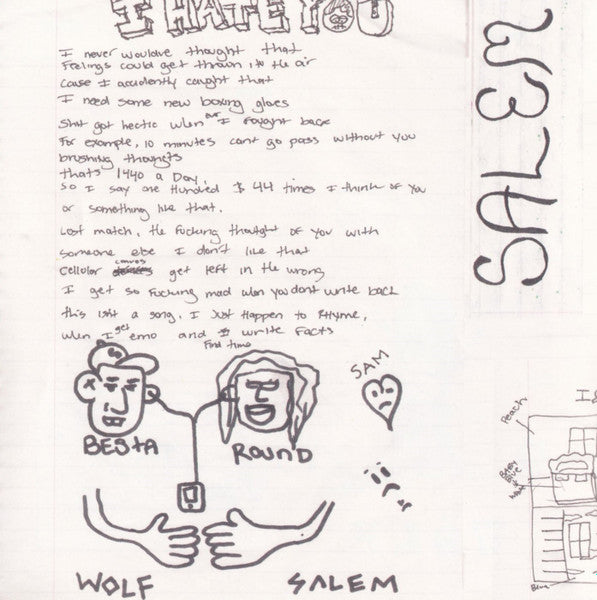 I HATE YOU
I never wouldve thought that
Feelings could get thrown in the air
Cause I accidently caught that
I need some new boxing gloves
Shit got hectic when I fought back
For example, 10 minutes cant go pass without you
brushing thoughts
thats 1440 a Day,
So I say one Hundred & 44 times I think of you
or something like that,
Lost match, the fucking thought of you with
someone else I don't like that
Cellular convos get left in the wrong
I get so fucking mad when you dont write back
this isnt a song, I Just Happen to Rhyme,
when I get emo and find time I write facts
BESTA
ROUND
SAM
WOLF
SALEM
SALEM
Peach
BABY
BLUE
Blue